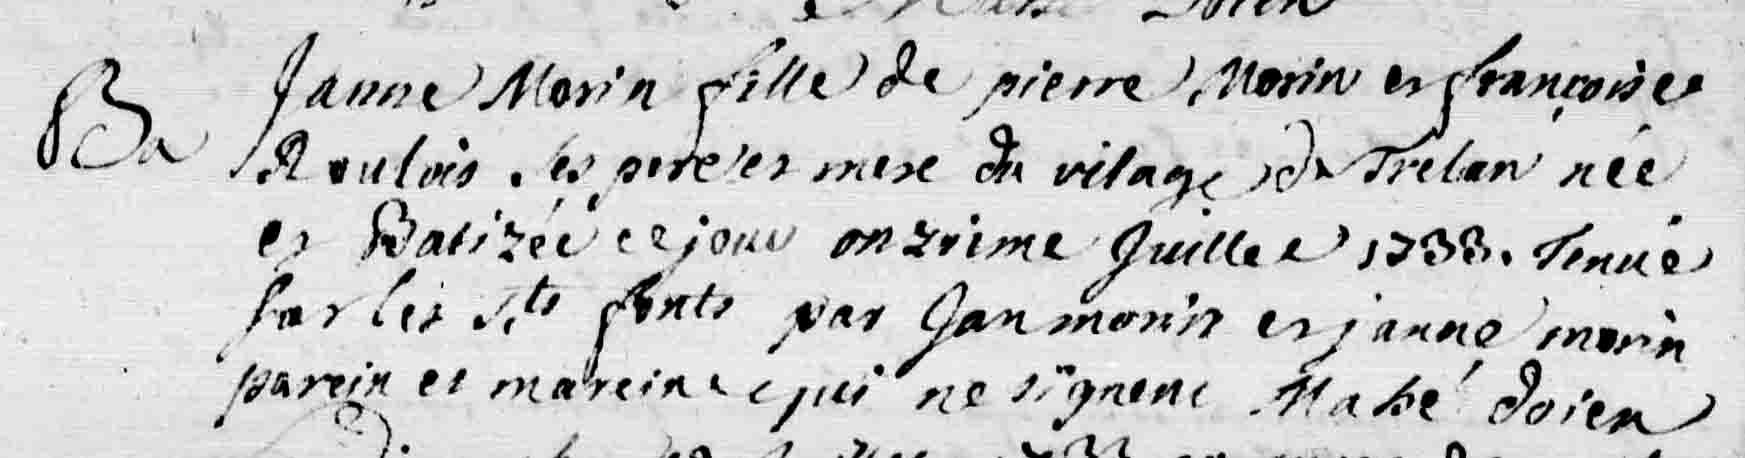 Doien
Ba Janne Morin fille de pierre Morin et françoise
Roulois ses pere et mere du vilage de Trelan née
et Batizée ce jour onzieme Juillet 1733. Tenue
sur les sts fonts par Jan morin et janne morin
parein et mareine qui ne signent Mahé doien
1733